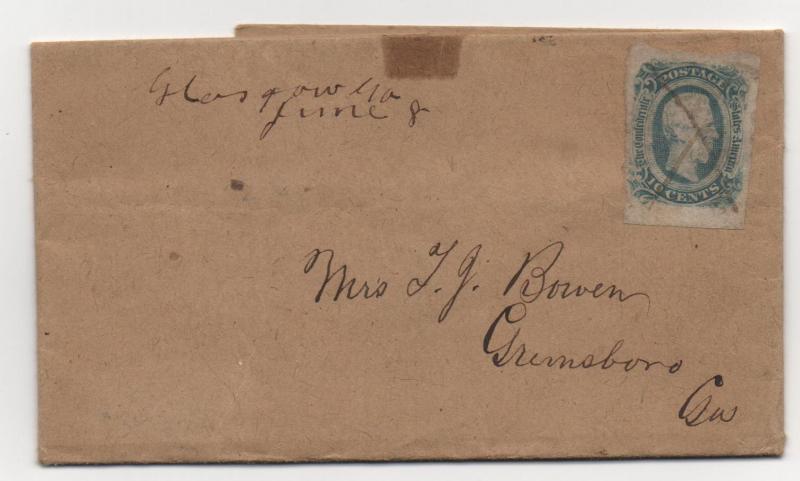 Glasgow Ga
June 8
POSTAGE
The Confederate States America
10 CENTS
Mrs T. J. Bowen
Greensboro
Gas